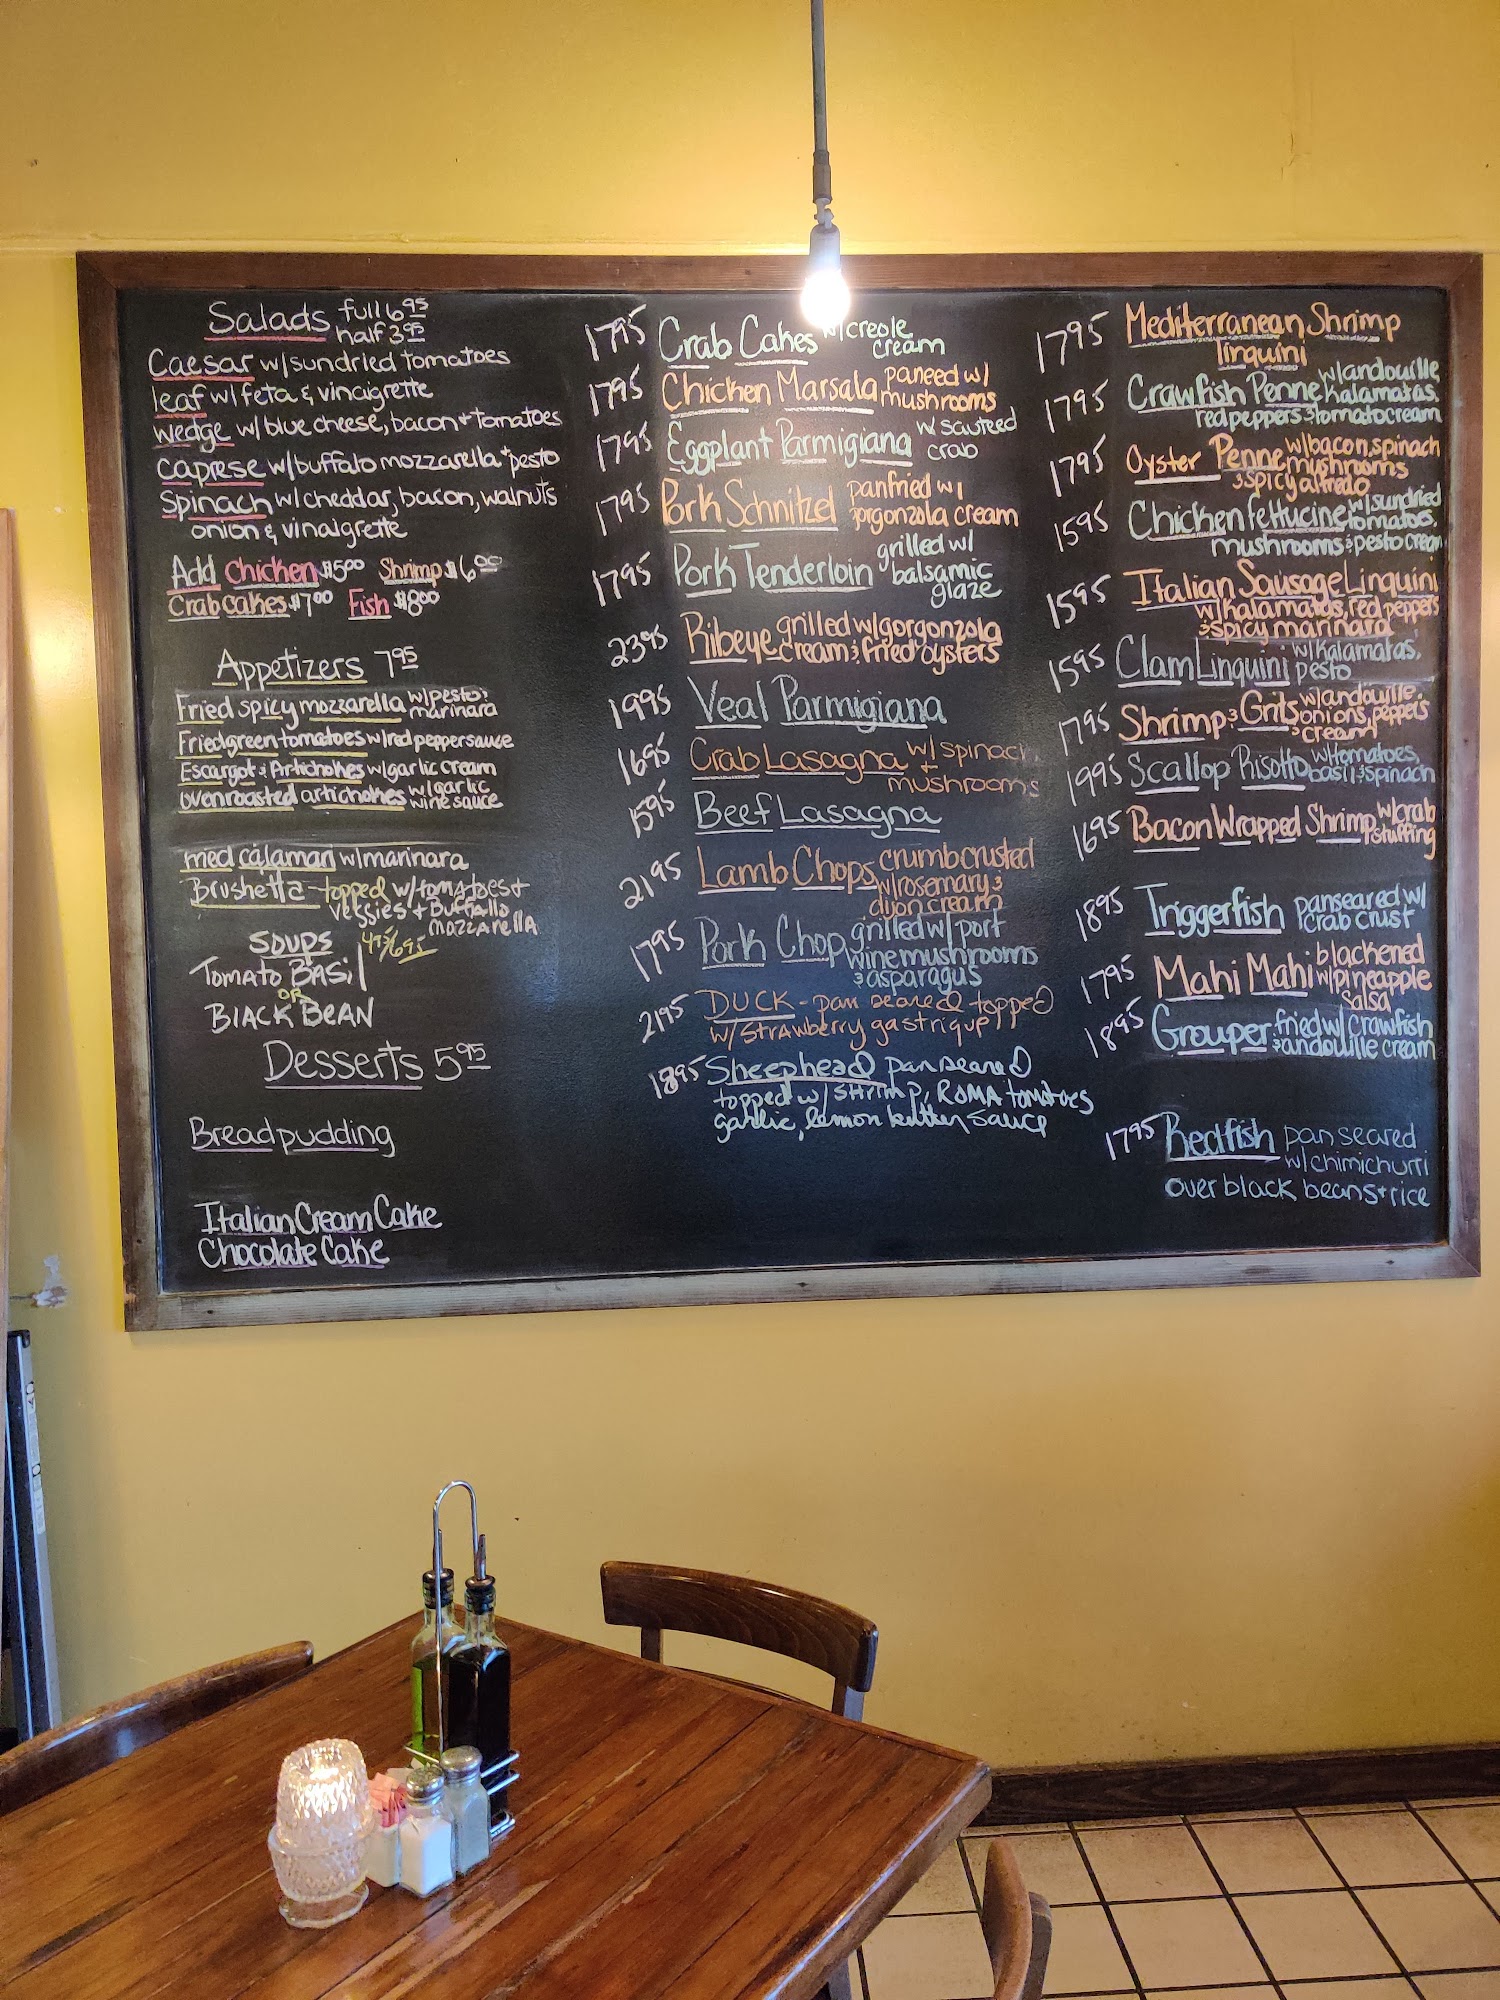 Salads full 6.95
half 3.95
Caesar w/sundried tomatoes
leaf w/feta & vinaigrette
wedge w/ blue cheese, bacon + tomatoes
caprese w/buffalo mozzarella + pesto
Spinach w/cheddar, bacon, walnuts
onion & vinaigrette
Add chicken $5.00 Shrimp $6.00
Crab cakes $7.00 Fish $8.00
Appetizers 7.95
Fried spicy mozzarella w/pesto &
marinara
Fried green tomatoes w/red pepper sauce
Escargot & Artichokes w/garlic cream
ovenroasted artichokes w/garlic
wine sauce
med calamari w/marinara
Brushetta - topped w/tomatoes +
veggies + Buffallo
mozzarella
Soups 4.95/6.95
Tomato Basil
or
Black Bean
Desserts 5.95
Bread pudding
Italian Cream Cake
Chocolate Cake
1795 Crab Cakes w/creole
cream
1795 Chicken Marsala paneed w/
mushrooms
1795 Eggplant Parmigiana w/ sauteed
crab
1795 Pork Schnitzel panfried w/
gorgonzola cream
1795 Pork Tenderloin grilled w/
balsamic
glaze
2395 Ribeye grilled w/gorgonzola
cream & fried oysters
1995 Veal Parmigiana
1695 Crab Lasagna w/ spinach
+ mushrooms
1595 Beef Lasagna
2195 Lamb Chops crumbcrusted
w/rosemary &
dijon cream
1795 Pork Chop grilled w/port
wine mushrooms
& asparagus
2195 Duck - pan seared topped
w/ strawberry gastrique
1895 Sheephead pan seared
topped w/ shrimp, Roma tomatoes
garlic, lemon butter sauce
1795 Mediterranean Shrimp
linquini
1795 Crawfish Penne w/andouille
kalamatas,
red peppers & tomato cream
1795 Oyster Penne w/bacon, spinach
mushrooms
& spicy alfredo
1595 Chicken fettucine w/sundried
tomatoes,
mushrooms & pesto cream
1595 Italian Sausage Linquini
w/kalamatas, red peppers
& spicy marinara
1595 Clam Linquini w/kalamatas,
pesto
1795 Shrimp & Grits w/andouille,
onions, peppers
& cream
1995 Scallop Risotto w/tomatoes,
basil & spinach
1695 Bacon Wrapped Shrimp w/crab
stuffing
1895 Triggerfish panseared w/
crab crust
1795 Mahi Mahi blackened
w/pineapple
salsa
1895 Grouper fried w/ crawfish
& andouille cream
1795 Redfish pan seared
w/chimichurri
over black beans + rice